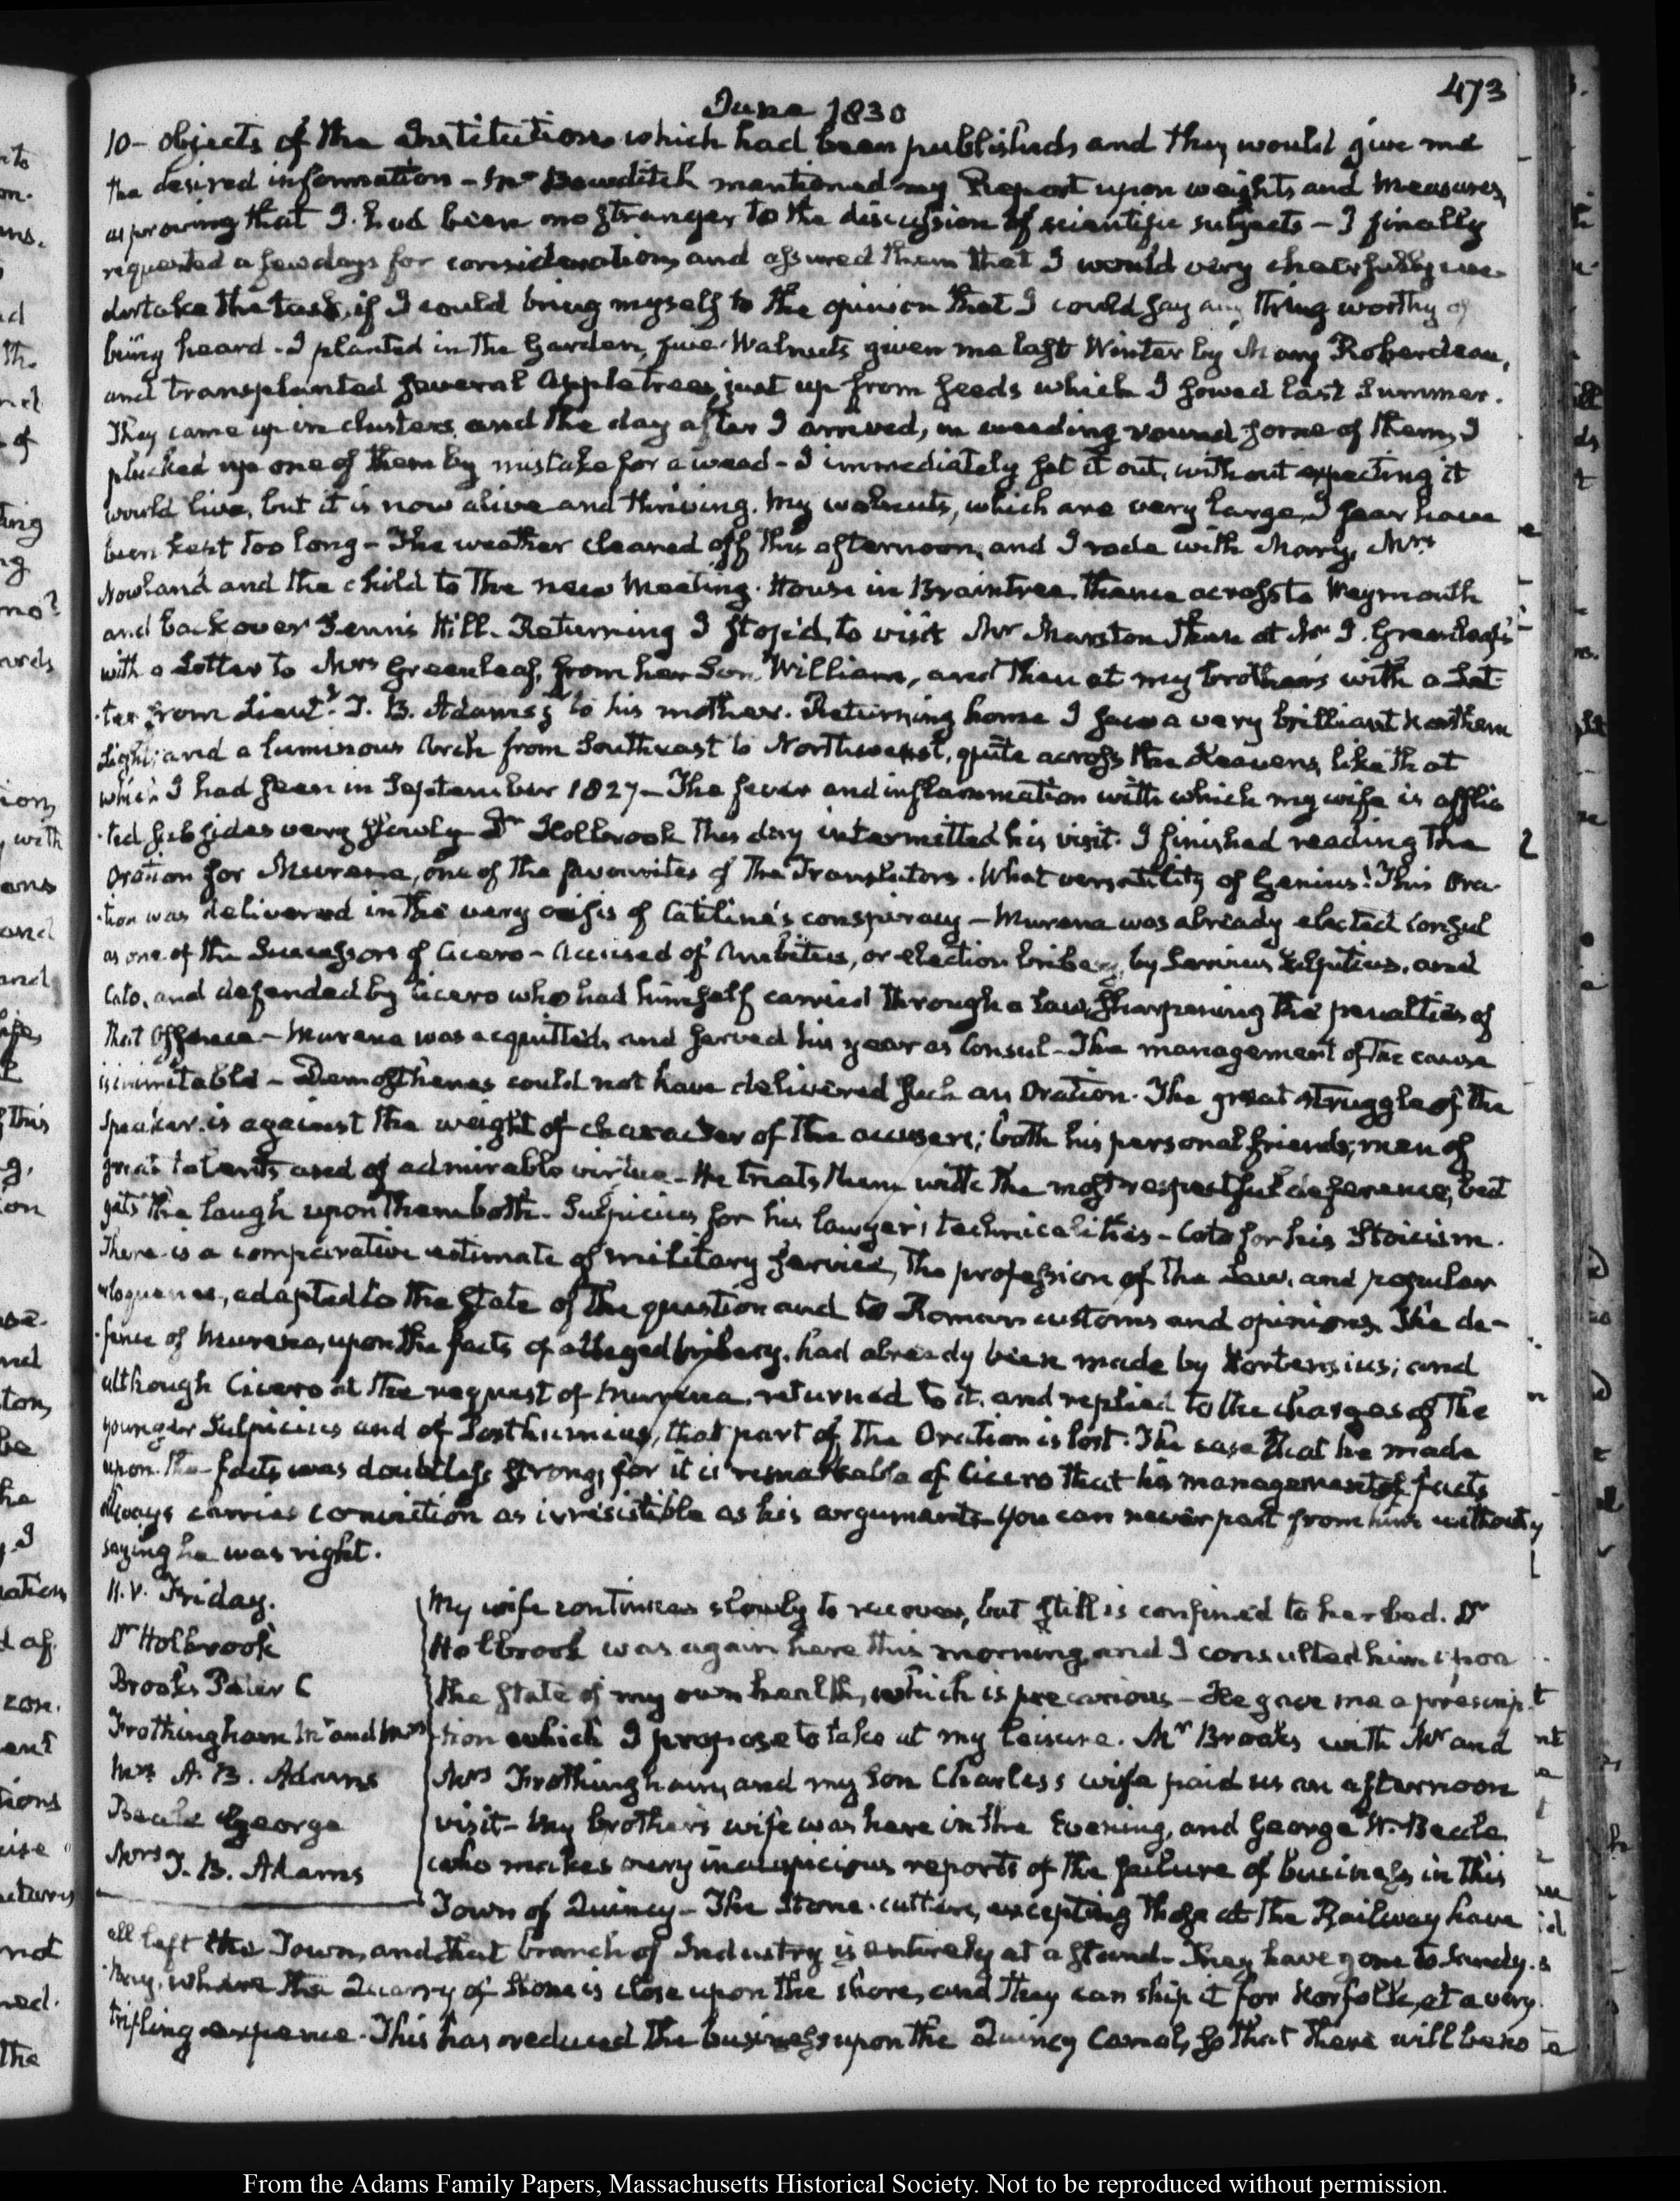 473
June 1830
10 - objects of the Institution which had been published, and they would give me
the desired information - Mr. Bowditch mentioned my Report upon weights and Measures,
as proving that I had been no stranger to the discussion of scientific subjects - I finally
requested a few days for consideration, and assured them that I would very cheerfully un-
dertake the task, if I could bring myself to the opinion that I could say any thing worthy of
being heard - I planted in the Garden, five Walnuts given me last Winter by Mary Roberdeau,
and transplanted several Apple trees, just up from seeds which I sowed last Summer.
They came up in clusters, and the day after I arrived, in weeding round some of them, I
plucked up one of them by mistake for a weed - I immediately set it out, without expecting it
would live, but it is now alive and thriving. My walnuts, which are very large, I fear have
been kept too long - The weather cleared off this afternoon, and I rode with Mary, Mrs
Nowland and the child to the new Meeting-House in Braintree, thence across to Weymouth
and back over Penn's Hill. Returning I stop'd, to visit Mr Marston then at Mr. Greenleaf's
with a Letter to Mrs Greenleaf, from her Son William, and then at my brother's with a Let-
-ter from Lieut. J. B. Adams to his mother. Returning home I saw a very brilliant Northern
Light; and a luminous Arch from Southeast to Northwest, quite across the Heavens, like that
which I had seen in September 1827 - The fever and inflammation with which my wife is afflic
-ted subsides very slowly Dr Holbrook this day intermitted his visit. I finished reading the
Oration for Murena, one of the favourites of the Translators. What versatility of Genius! This Ora-
-tion was delivered in the very crisis of Catiline's conspiracy - Murena was already elected Consul
as one of the Successors of Cicero - Accused of Ambitus, or election bribery, by Servius Sulpitius, and
Cato, and defended by Cicero who had himself carried through a law, sharpening the penalties of
that Offence - Murena was acquitted, and served his year as Consul - The management of the cause
is inimitable - Demosthenes could not have delivered such an Oration. The great struggle of the
Speaker is against the weight of character of the accusers; both his personal friends; men of
great talents and of admirable virtue - He treats them with the most respectful deference, but
gets the laugh upon them both - Sulpicius for his lawyer's technicalities - Cato for his Stoicism.
There is a comparative estimate of military service, the profession of the Law, and popular
eloquence, adapted to the state of the question and to Roman customs and opinions. The de-
-fence of Murena, upon the facts of alleged bribery, had already been made by Hortensius; and
although Cicero at the request of Murena, returned to it, and replied to the charges of the
younger Sulpicius and of Posthumius, that part of the Oration is lost. The case that he made
upon the facts was doubtless strong, for it is remarkable of Cicero that his management of facts
always carries conviction as irresistible as his arguments - You can never part from him without
saying he was right.
11. V. Friday.
Dr Holbrook
Brooks Peter C
Frothingham Mr and Mrs
Mrs A. B. Adams
Beale George
Mrs T. B. Adams
My wife continues slowly to recover, but still is confined to her bed. Dr
Holbrook was again here this morning, and I consulted him upon
the state of my own health, which is precarious - He gave me a prescrip-
-tion which I propose to take at my leisure. Mr Brooks with Mr and
Mrs Frothingham, and my Son Charles's wife paid us an afternoon
visit - My brother's wife was here in the Evening, and George W. Beale
who makes very inauspicious reports of the failure of business in this
Town of Quincy - The Stone-cutters, excepting those at the Railway have
all left the Town, and that branch of Industry is entirely at a stand - They have gone to Sandy-
-bay, where the Quarry of Stone is close upon the shore, and they can ship it for Norfolk, at a very
trifling expence. This has reduced the business upon the Quincy Canal, so that there will be no
From the Adams Family Papers, Massachusetts Historical Society. Not to be reproduced without permission.